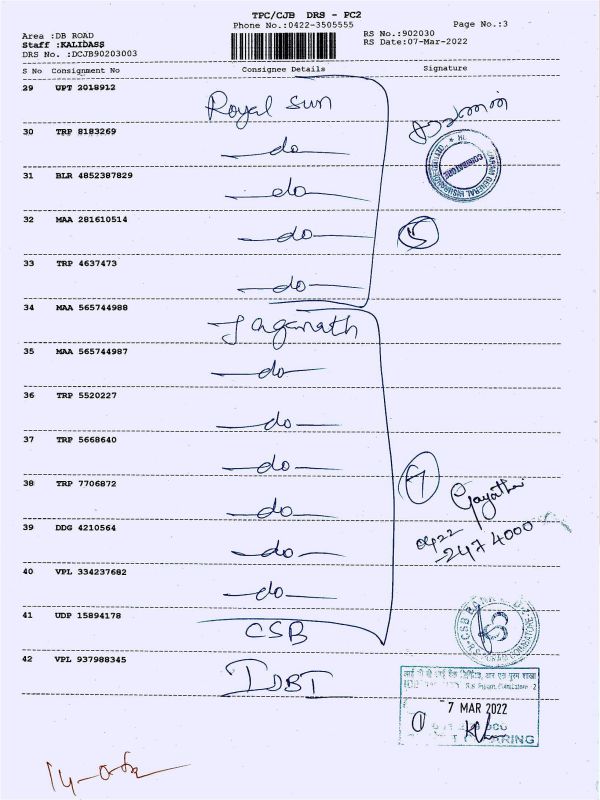 TPC/CJB DRS - PC2
Phone No.:0422-3505555
Page No.:3
Area :DB ROAD
RS No.:902030
Staff :KALIDASS
RS Date:07-Mar-2022
DRS No. :DCJB90203003
S No Consignment No Consignee Details Signature
29 UPT 2018912 Royal Sun
30 TRP 8183269 do
31 BLR 4852387829 do
32 MAA 281610514 do
5
33 TRP 4637473 do
34 MAA 565744988 Jaganath
35 MAA 565744987 do
36 TRP 5520227 do
37 TRP 5668640 do
7
38 TRP 7706872 do
Gayathri
0422
2474000
39 DDG 4210564 do
40 VPL 334237682 do
41 UDP 15894178 CSB
42 VPL 937988345 IDBI
7 MAR 2022